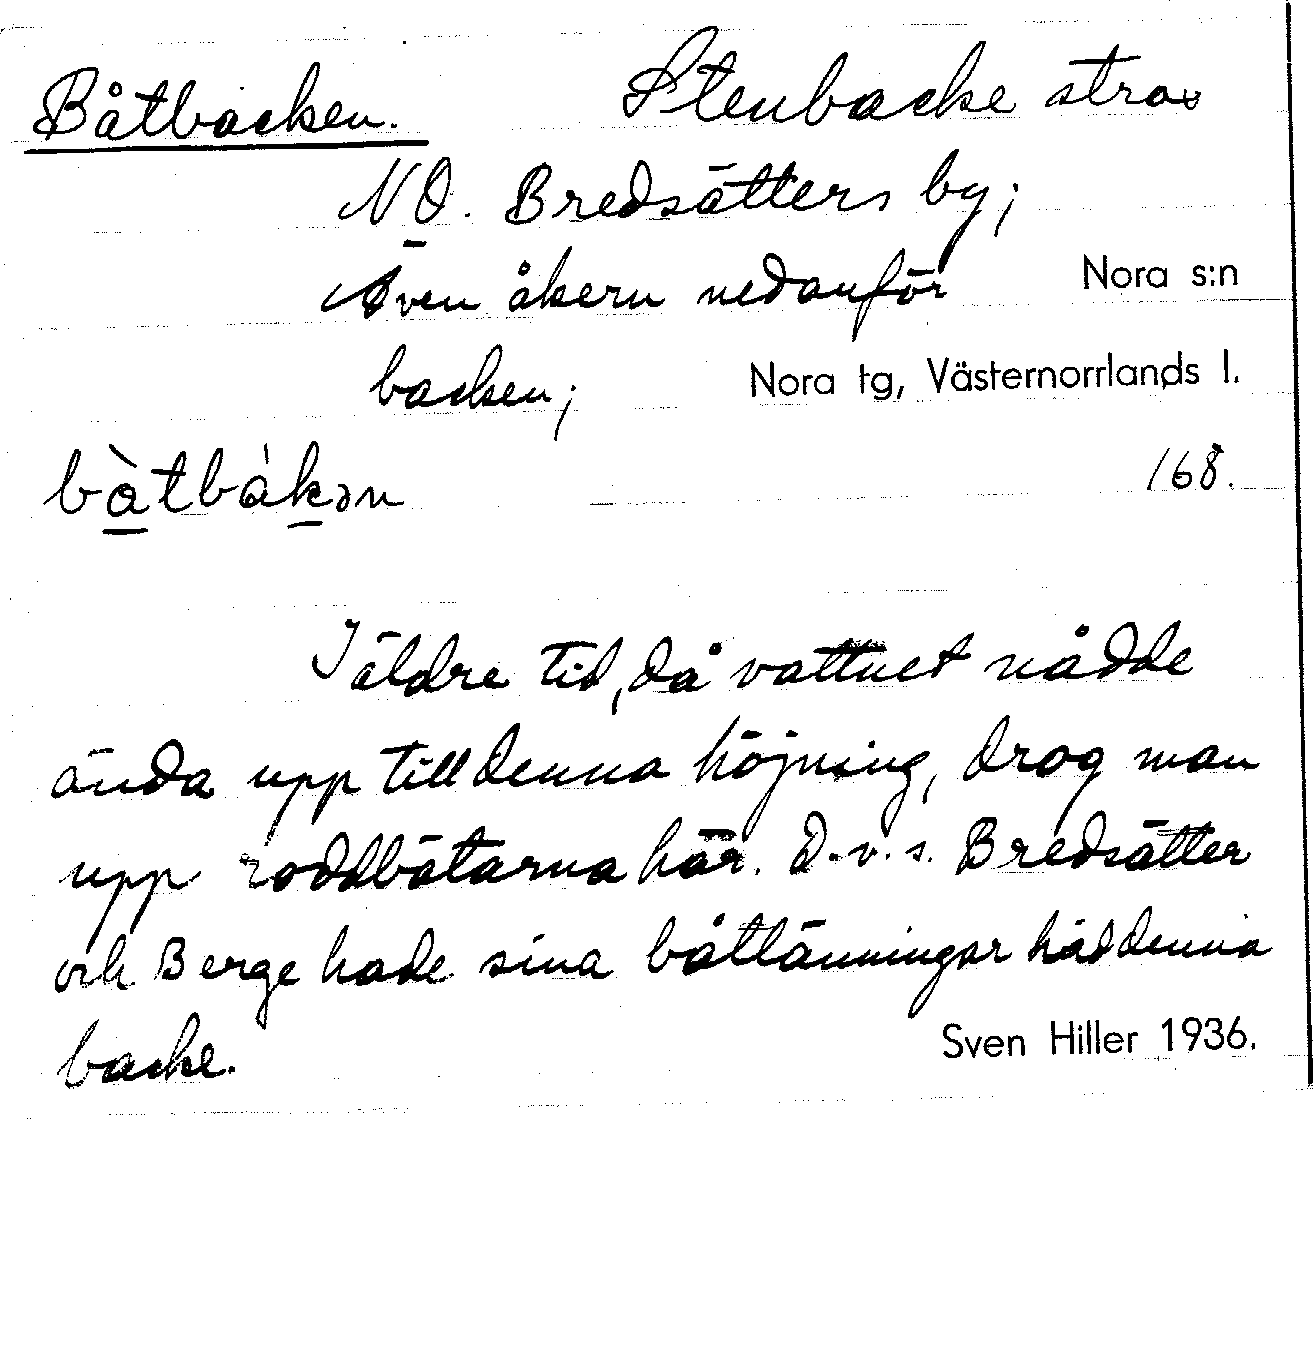 Båtbacken. Stenbacke strax
NO. Bredsätters by;
Även åkern nedanför Nora s:n
backen; Nora tg, Västernorrlands l.
bàtbákən 168.
I äldre tid, då vattnet nådde
ända upp till denna höjning, drog man
upp roddbåtarna här. D.v.s. Bredsätter
och Berge hade sina båtlänningar hit denna
backe. Sven Hiller 1936.